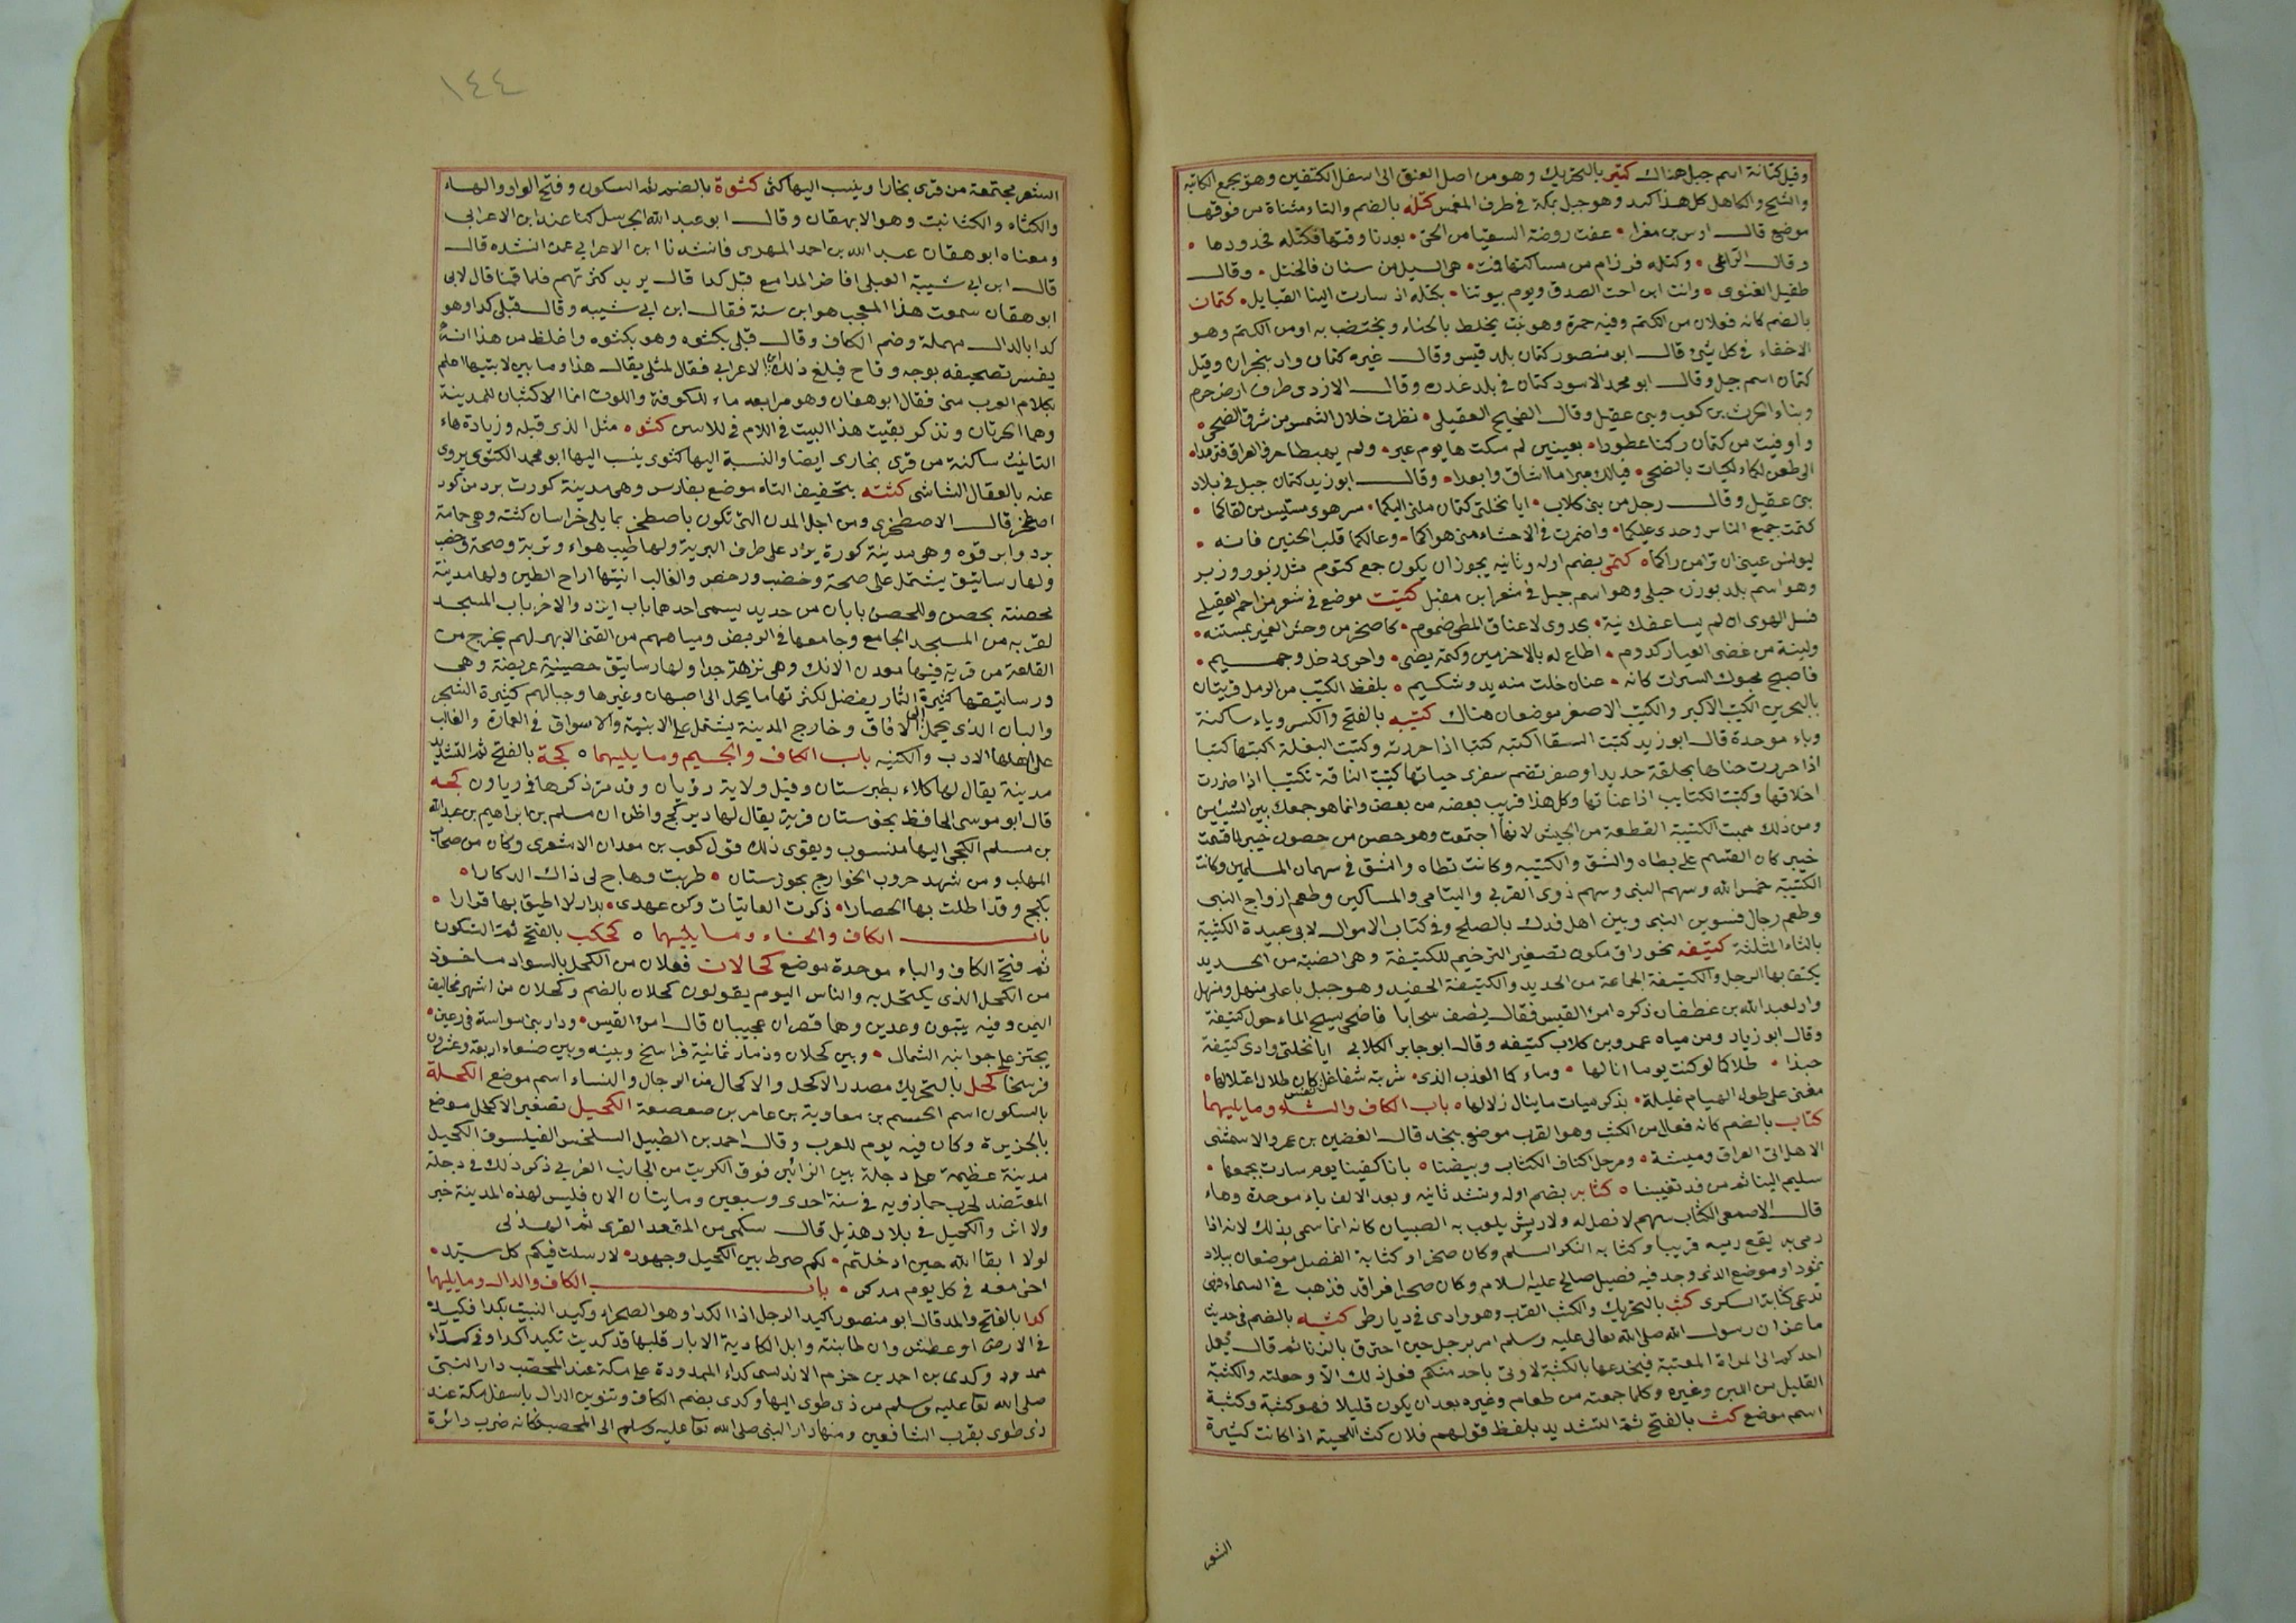 وقيل كتانة اسم جبل هناك كتير بالتحريك وهو من اصل العنق الى اسفل الكتفين وهو يجمع الكاثبة
والشبح والكاهل كل هذا كتد وهو جبل بمكة في طرف المغمس كتله بالضم والتاء مثناة من فوقها
موضع قال اوس بن مغرا عفت روضة السقيا من الحي بعدنا وقتها فكتله فجدودها
وقال الراعى وكتله فرزام من مساكنها فت هى السيل من سنان فالختل وقال
طفيل الغنوى وانت ابن اخت الصدق ويوم بيوتنا بكتله اذ سارت الينا القبايل كتمان
بالضم كانه فعلان من الكتم وفيه حمرة وهو نبت يخلط بالحناء ويختضب به او من الكتم وهو
الاخفاء في كل شئ قال ابو منصور كتمان بلد قيس وقال غيره كتمان واد بنجران وقيل
كتمان اسم جبل وقال ابو محمد الاسود كتمان في بلد عذره وقال الازدى طرف ارض حرم
وبناء الحرث بن كعب وبنى عقيل وقال القحيح العقيلى نظرت خلال الشمس من شرق الضحى
واوفيت من كتمان ركنا عطورا بعينين لم مسكت ها يوم عبره ولم يهبطا حرف العراق فترمدا
الى ظعن لكماء لكيات بالضحى فيالك مبرا ما اشاق وابعدا وقال ابو زيد كتمان جبل في بلاد
بنى عقيل وقال رجل من بنى كلاب ايا نخلتى كتمان ملنى اليكما سرهوى مستيس من لقاكما
كتمت جميع الناس وجدى عليكما واضمرت في الاحشاء منى هواكما وعالكما قلب الحنين فانه
ليونس عينى ان ترامن راكما كتمى بضم اوله وثانيه يجوز ان يكون جمع كتوم مثل زبور وزبر
وهو اسم بلد بوزن حبلى وهو اسم جبل في شعر ابن مقبل كتيت موضع في شعر مزاحم العقيلى
فسل الهوى ان لم يساعفك نية بجدوى لاعناق المطى ضموم كاصخر من وحش الغمير بمستنه
ولينة من غضى الغيار كدوم اطاع له بالاخزمين وكمة يضى واحوى دخل وجميم
فاصبح محبوك السرات كانه عنان خلت منه يد وشكيم بلفظ الكتيب من الرمل قريتان
بالبحرين الكتيب الاكبر والكتيب الاصغر موضعان هناك كتيبه بالفتح والكسر وياء ساكنة
وباء موحدة قال ابو زيد كتبت السقا اكتبه كتبا اذا خرزته وكتبت البغلة اكتبها كتبا
اذا حررت حياها بحلقة حديد او صفر تضم سفرى حياتها كتبت الناقة تكتيبا اذا ضررت
اخلافها وكتبت الكتايب اذا عباتها وكل هذا قريب بعضه من بعض وانما هو جمعك بين الشيئين
ومن ذلك سميت الكتيبة القطعة من الجيش لانها اجتمعت وهو حصن من حصون خيبر لما قسمت
خيبر كان القسم على بطاه والشق والكتيبه وكانت نطاه والشق في سهمان المسلمين وكانت
الكتيبة خمس الله وسهم النبى وسهم ذوى القربى واليتامى والمساكين وطعم ازواج النبى
وطعم رجال فسوين النبى وبين اهل فدك بالصلح وفي كتاب الاموال لابى عبيدة الكثيبة
بالثاء المثلثة كتيفه نحوراق مكون تصغير الترخيم للكتيفة وهى الضبة من الحديد
يكتف بها الرجل والكتيفة الجماعة من الحديد والكتيفة الحقد وهو جبل باعلى منهل ومنهل
واد لعبد الله بن غطفان ذكره امرؤ القيس فقال يصف سحابا فاضحى يسح الماء حول كتيفة
وقال ابو زياد ومن مياه عمرو بن كلاب كتيفه وقال ابو جابر الكلابى ايا نخلتى وادى كتيفة
حبذا ظلالكما لو كنت يوما انالها وماء كما العذب الذى شربة شفا غل نفس كان طلال اعتلالها
مغنى على طول الهيام غليلة بذكر ميات ما ينال زلالها باب الكاف والشاء وما يليهما
كتاب بالضم كانه فعال من الكثب وهو القرب موضع بنجد قال الغضين بن عمرو الاسمثنى
الا هل اتى العراق وميشة ومرحل اكناف الكثاب وبيضنا بانا كفينا يوم سارت بجمعها
سليم الينا ثم من قد تقيبنا كثابه بضم اوله وتشد ثانيه وبعد الالف باء موحدة وهاء
قال الاصمعى الكثاب سهم لا نصل له ولا ريش يلعب به الصبيان كانه انما سمى بذلك لانه اذا
رمى به يقع رميه قريبا وكثابه النكر السلم وكان صخر او كثابة الفصل موضعان ببلاد
ثمود او موضع الذى وجد فيه فصيل صالح عليه السلام وكان صحرا فراقد فذهب في السماء فهى
تدعى كثابة السكرى كثب بالتحريك والكثب القرب وهو وادى في ديار طى كثبه بالضم في حديث
ماعز ان رسول الله صلى الله تعالى عليه وسلم امر برجل حين اعترف بالزنا ثم قال يعمل
احدكم الى المراة المعتبة فيخدعها بالكثبة لا اوتى باحد منكم فعل ذلك الا وجعلته والكثبة
القليل من اللبن وغيره وكلما جمعته من طعام وغيره بعد ان يكون قليلا فهو كثبة وكثبة
اسم موضع كث بالفتح ثم التشديد بلفظ قولهم فلان كث اللحية اذا كانت كثيرة
الشعر
١٤٤
الشعر مجتمعة من قرى بخارا وينسب اليها كثى كثوة بالضم ثم السكون وفتح الواو والهاء
والكثاه والكثا نبت وهو الابهقان وقال ابو عبد الله الجر سل كنا عند ابن الاعرابى
ومعناه ابو هفان عبد الله بن احمد المهدى فانشدنا ابن الاعرابى عمن انشده قال
قال ابن ابى شيبة العبلى افاض المدامع قبل كدا قال يريد كثرتهم فلما قمنا قال لابى
ابو هفان سمعت هذا المعجب هو ابن سنة فقال ابن ابى شيبه وقال قبلى كدا وهو
كدا بالدال مهملة وضم الكاف وقال قبلى بكثوه وهو بكثوه واغلظ من هذا انه
يفسر تصحيفه بوجه وقاح فبلغ ذلك ابن الاعرابى فقال لمثلى يقال هذا وما بين لابتيها اعلم
بكلام العرب منى فقال ابو هفان وهو مرابعه ماء للكوفة واللوب انما الاكثبان للمدينة
وهما الحرتان وتذكر بقيت هذا البيت في اللام في للاس كثوه مثل الذى قبله وزيادة هاء
التانيث ساكنة من قرى بخارى ايضا والنسبة اليها كثوى ينسب اليها ابو محمد الكثوى يروى
عنه بالعقال الشاشى كثته بتخفيف التاء موضع بفارس وهى مدينة كورت برد من كور
اصطخر قال الاصطخرى ومن اجل المدن التى تكون باصطخر بما يلى خراسان كثته وهى حمامة
برد وابرقوه وهى مدينة كورة يزد على طرف البرية ولها طيب هواء وتربة وصحة وخصب
ولها رساتيق يشتمل على صحة وخصب ورخص والغالب ابنيتها اراج الطين ولها مدينة
محصنة بحصن وللحصن بابان من حديد يسمى احدهما باب ايزد والاخر باب المسجد
لقربه من المسجد الجامع وجامعها في الربض ومياههم من القنى الا نهر لهم يخرج من
القلعة من قرية فيها معدن الانك وهى نزهة جدا ولها رساتيق حصينة عريضة وهى
ورساتيقها كثيرة الثمار يفضل لكثرتها ما يحمل الى اصبهان وغيرها وجبالهم كثيرة الشجر
والبان الذى يحمل الى الافاق وخارج المدينة يشتمل على الابنية والاسواق في العمارة والغالب
على اهلها الادب والكتبه باب الكاف والجيم وما يليهما كجة بالفتح ثم التشديد
مدينة يقال لها كلاء بطبرستان وقيل ولاية رويان وقد مر ذكرها في رياون كجه
قال ابو موسى الحافظ بخوستان قرية يقال لها دير كج واظن ان مسلم بن ابراهيم بن عبد الله
بن مسلم الكجى اليها منسوب ويقوى ذلك قول كعب بن معدان الاشعرى وكان من صحاب
المهلب ومن شهد حروب الخوارج بخوزستان طربت وهاج لى ذاك الدكارا
بكج وقد اطلت بها الحصارا ذكرت الغانيات وكن عهدى بدار لا اطيق بها قرارا
باب الكاف والحاء وما يليهما كحكب بالفتح ثم السكون
ثم فتح الكاف والباء موحدة موضع كحالان فعلان من الكحل بالسواد ماخوذ
من الكحل الذى يكتحل به والناس اليوم يقولون كحلان بالضم وكحلان من اشهر مخاليف
اليمن وفيه بينون ورعين وهما قصران عجيبان قال امرؤ القيس ودار بنى سواسة في رعين
يجتز على جوانبه الشمال وبين كحلان وذمار ثمانية فراسخ وبينه وبين صنعاء اربعة وعشرون
فرسخا كحل بالتحريك مصدر الاكحل والاكحال من الرجال والنساء اسم موضع الكحلة
بالسكون اسم الحسم بن معاوية بن عامر بن صعصعة الكحيل تصغير الاكحل موضع
بالجزيرة وكان فيه يوم للعرب وقال احمد بن الطبيل السلخس الفيلسوف الكحيل
مدينة عظيمة على دجلة بين الزابين فوق تكريت من الجانب الغربى ذكر ذلك في دجلة
المعتضد لحرب خمارويه في سنة احدى وسبعين ومايتان الان فليس لهذه المدينة خبر
ولا اثر والكحيل في بلاد هذيل قال سكمى من المقعد القرى ثم الهذلى
لولا ابقا الله حين ادخلتم لكم صرط بين الكحيل وجهور لارسلت فيكم كل سيد
اخى معه في كل يوم مدكر باب الكاف والدال وما يليهما
كدا بالفتح والمد قال ابو منصور اكيد الرجل اذا الكدا وهو الصحراء وكيد النبت يكدا فكيدة
في الارض او عطش وان طابنته وابل الكادية الابار قلبها قد كديت تكيد اكدا وفى كداء
ممدود وكدى بن احمد بن حزم الاندلسى كداء الممدودة على مكة عند المحصب دار النبى
صلى الله تعا عليه وسلم من ذى طوى اليها وكدى بضم الكاف وتنوين الدال باسفل مكة عند
ذى طوى بقرب الشافعين ومنها دار النبى صلى الله تعا عليه وسلم الى المحصب فكانه ضرب دائرة